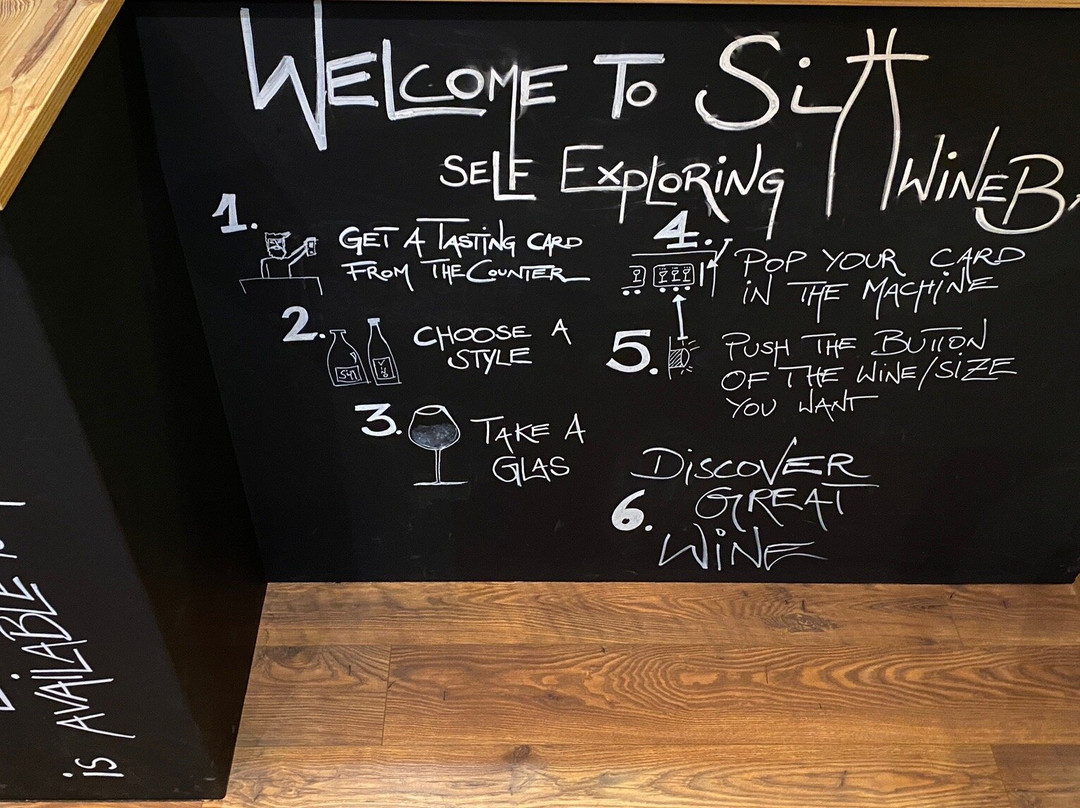 WELCOME TO Sitt
SELF EXPLORING WINEB
1. GET A TASTING CARD
FROM THE COUNTER
2. CHOOSE A
STYLE
3. TAKE A
GLAS
4. POP YOUR CARD
IN THE MACHINE
5. PUSH THE BUTTON
OF THE WINE/SIZE
YOU WANT
6. DISCOVER
GREAT
WINE
is AVAILABLE